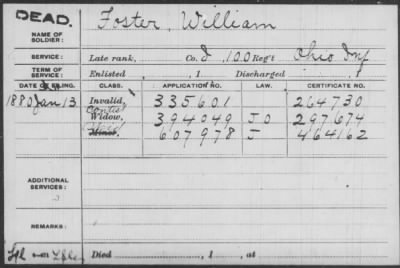 DEAD.
Foster, William
NAME OF
SOLDIER:
SERVICE:
Late rank, Co. I, 100 Reg't Ohio Inf
TERM OF
SERVICE:
Enlisted , 1 Discharged , 1
DATE OF FILING. CLASS. APPLICATION NO. LAW. CERTIFICATE NO.
1880 Jan 13 Invalid, 335601 264730
Contes
Widow, 394049 J O 297674
Minor, 607978 J 464162
ADDITIONAL
SERVICES:
REMARKS:
Died , 1 , at